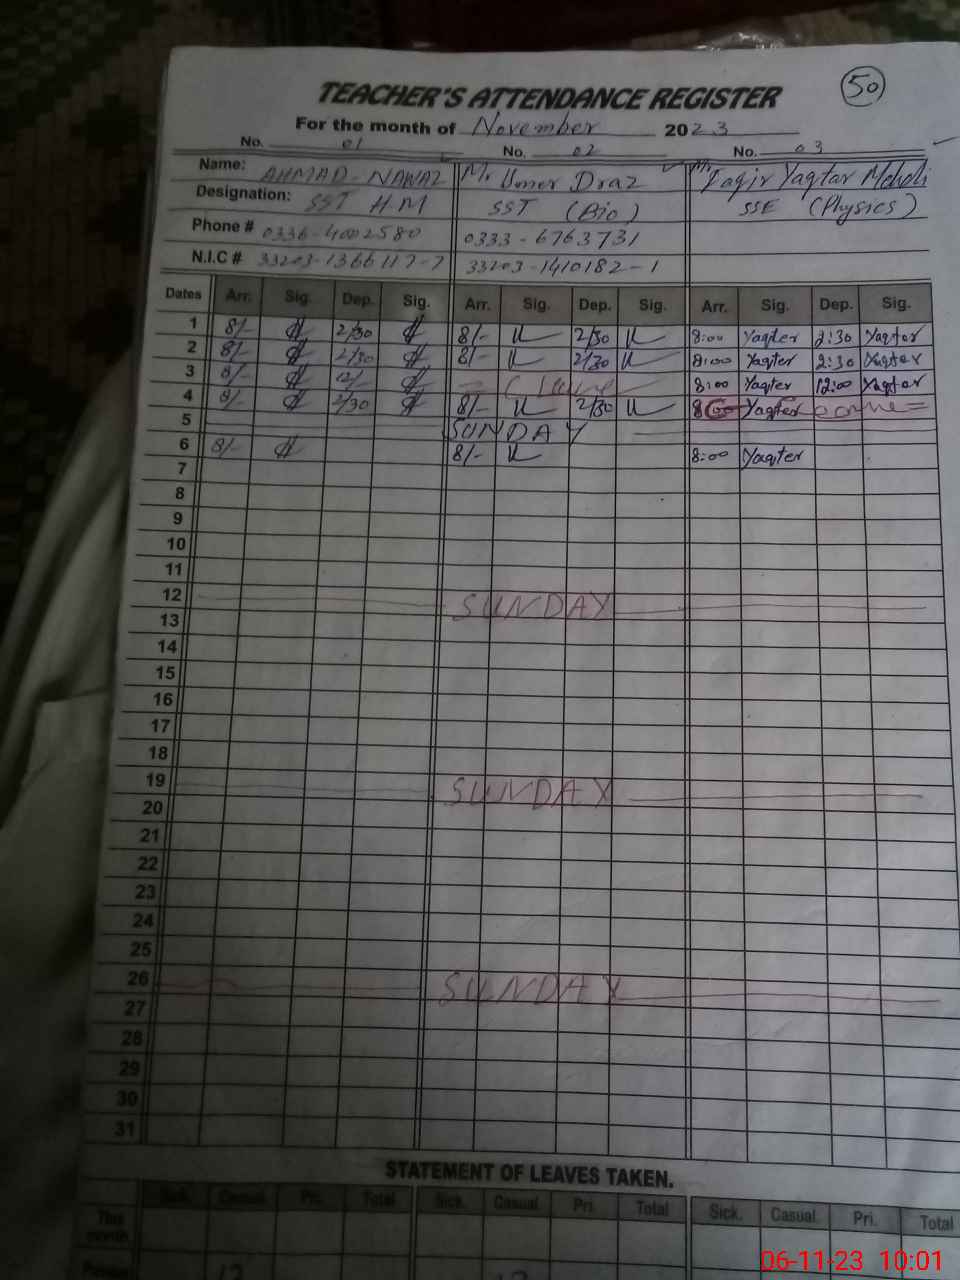 50
TEACHER'S ATTENDANCE REGISTER
For the month of November 2023
No. 01 No. 02 No. 03
Name: AHMAD-NAWAZ Mr Umer Draz Mr Yaqtar
Designation: SST HM SST (Bio) SSE (Physics)
Phone # 0336-4002580 0333-6763731
N.I.C # 33203-1366117-7 33203-1410182-1
Dates Arr. Sig. Dep. Sig. Arr. Sig. Dep. Sig. Arr. Sig. Dep. Sig.
1 8/- 2/30 8/- 2/30 8:00 Yaqter 2:30 Yaqter
2 8/- 2/30 8/- 2/30 8:00 Yaqter 2:30 Yaqter
3 8/- 12/- C Leave 8:00 Yaqter 12:00 Yaqter
4 8/- 2/30 8/- 2/30 Yaqter
5 SUNDAY
6 8/- 8/- 8:00 Yaqter
7
8
9
10
11
12 SUNDAY
13
14
15
16
17
18
19 SUNDAY
20
21
22
23
24
25
26 SUNDAY
27
28
29
30
31
STATEMENT OF LEAVES TAKEN.
Sick. Casual. Pri. Total Sick. Casual. Pri. Total Sick. Casual. Pri. Total
This month
06-11-23 10:01